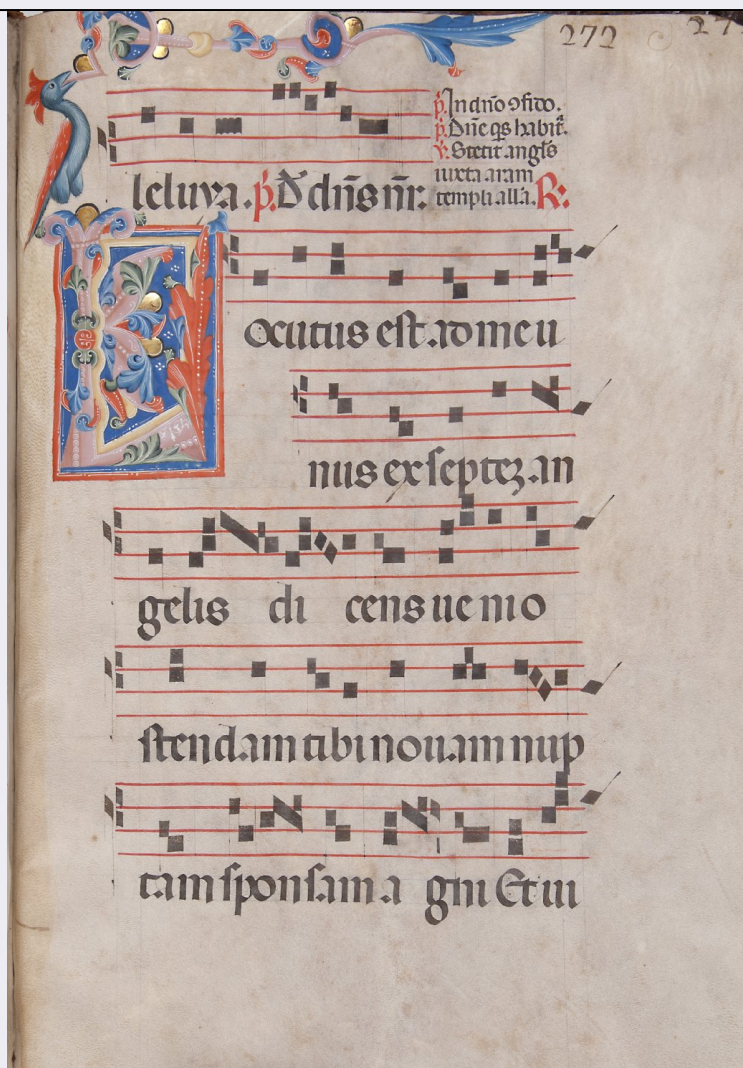 272
27
p. In dño ꝯfido.
p. Dñe qs habit.
v. Stetit angls
iuxta aram
templi alla. R:
leluya. p. D dñs nr:
ocutus est ad me u
nus ex septez an
gelis di cens ue nio
stendam tibi nouam nup
tam sponsam a gni Et ui